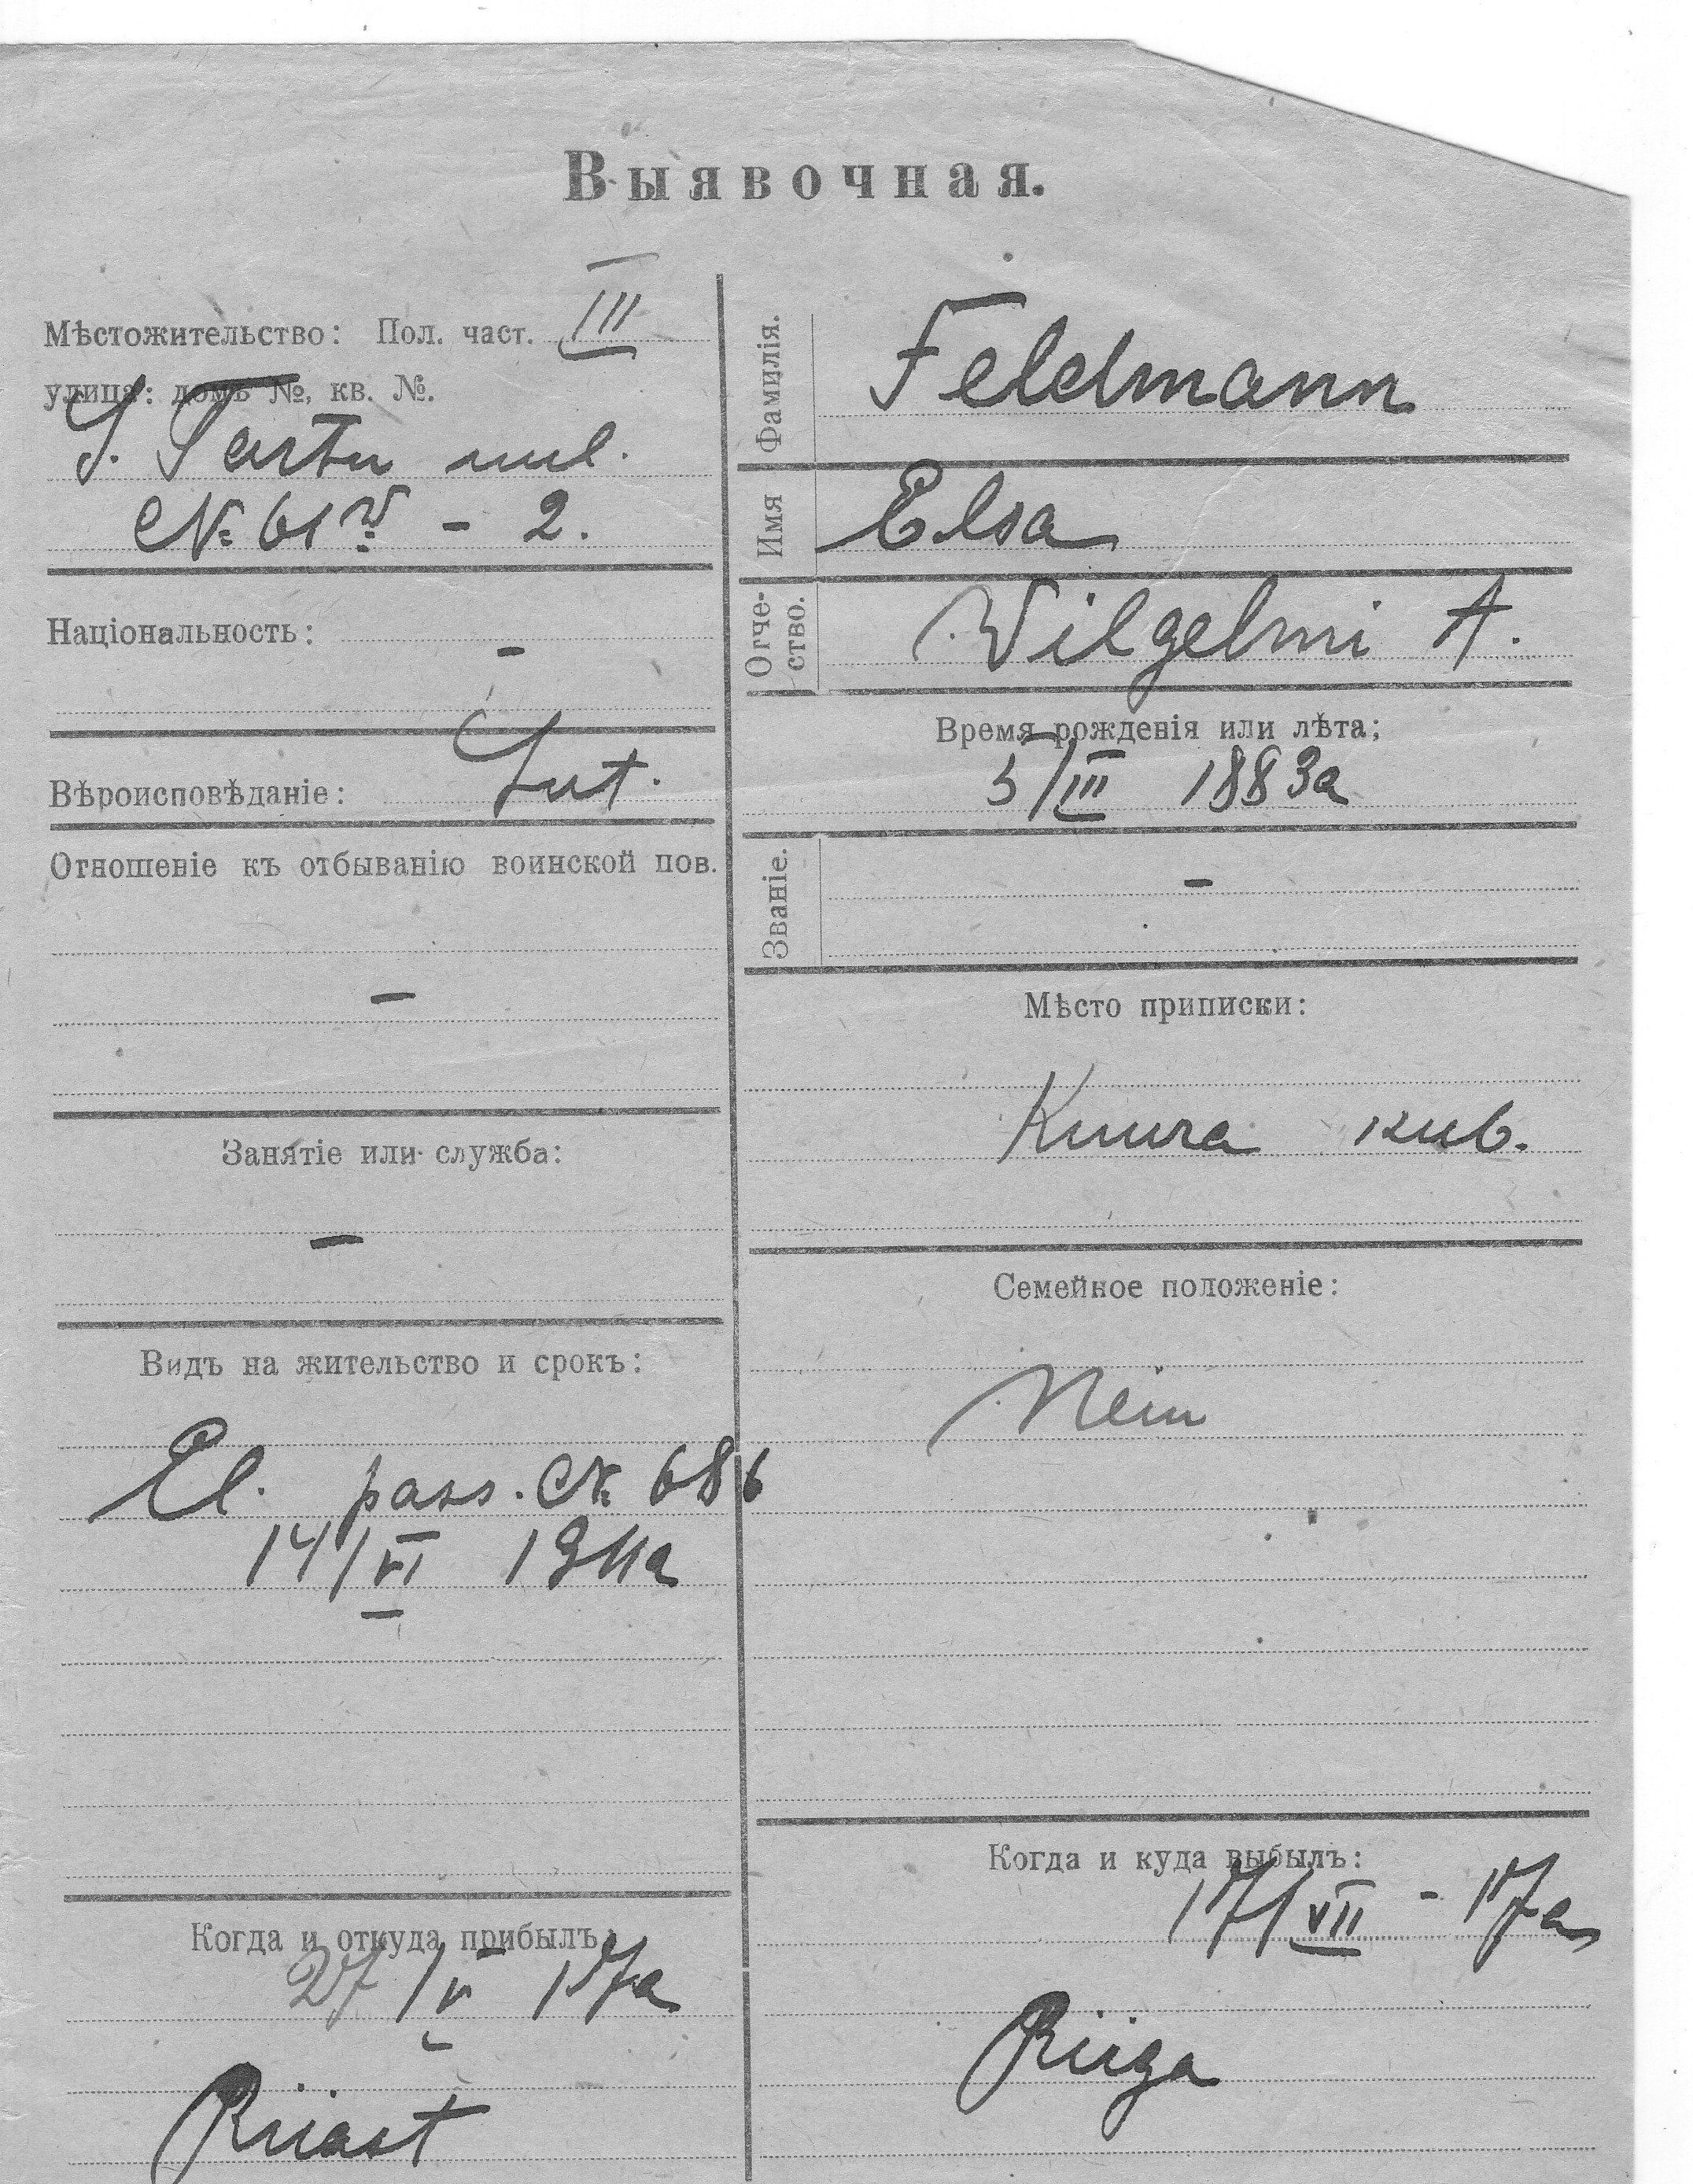 Выявочная.
Мѣстожительство: Пол. част. III
улица: домъ №, кв. №.
S. Tartu uul.
№ 61 - 2.
Національность: -
Вѣроисповѣданіе: Lut.
Отношеніе къ отбыванію воинской пов.
-
Занятіе или служба:
-
Видъ на жительство и срокъ:
El. pass. № 686
14/VI 1911a
Когда и откуда прибылъ:
27/V 17a
Riiast
Фамилія. Feldmann
Имя Elsa
Отче-
ство. Vilgelmi t.
Время рожденія или лѣта;
5/III 1883a
Званіе. -
Мѣсто приписки:
Семейное положеніе:
Когда и куда выбылъ:
17/VII - 17a
Riiga